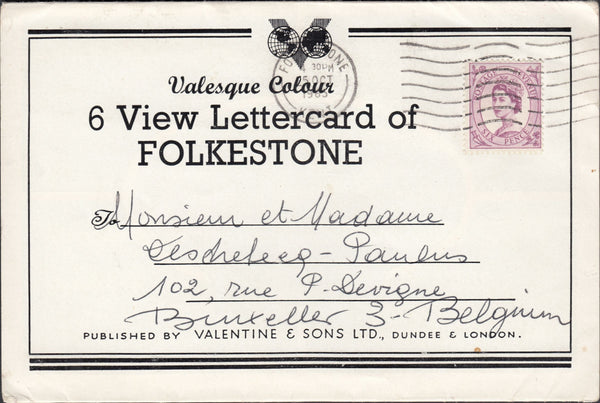 FOLKESTONE
30PM
5 OCT
1965
KENT
POSTAGE REVENUE
SIX PENCE
Valesque Colour
6 View Lettercard of
FOLKESTONE
To Monsieur et Madame
102, rue P. Devigne
Bruxelles 3 - Belgium
PUBLISHED BY VALENTINE & SONS LTD., DUNDEE & LONDON.